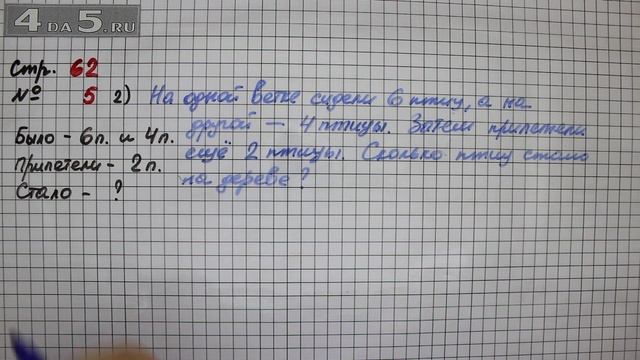 4DA5.RU
Стр. 62
№ 5 2) На одной ветке сидели 6 птиц, а на
другой — 4 птицы. Затем прилетели
ещё 2 птицы. Сколько птиц стало
на дереве?
Было - 6п. и 4п.
Прилетели - 2п.
Стало - ?